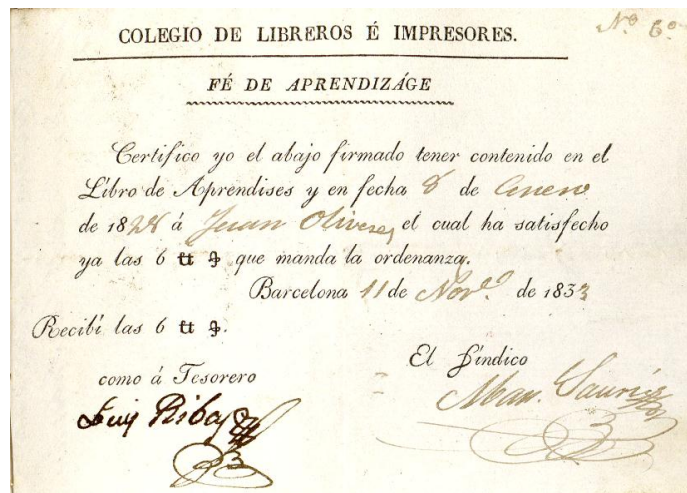 Nº 6º
COLEGIO DE LIBREROS É IMPRESORES.
FÉ DE APRENDIZÁGE
Certifico yo el abajo firmado tener contenido en el
Libro de Aprendises y en fecha 8 de Enero
de 1828 á Juan Oliveres, el cual ha satisfecho
ya las 6 ℔ ꝯ que manda la ordenanza.
Barcelona 11 de Nov.e de 1833
Recibí las 6 ℔ ꝯ.
El Síndico
como á Tesorero
Luis Ribas
Man. Saurí